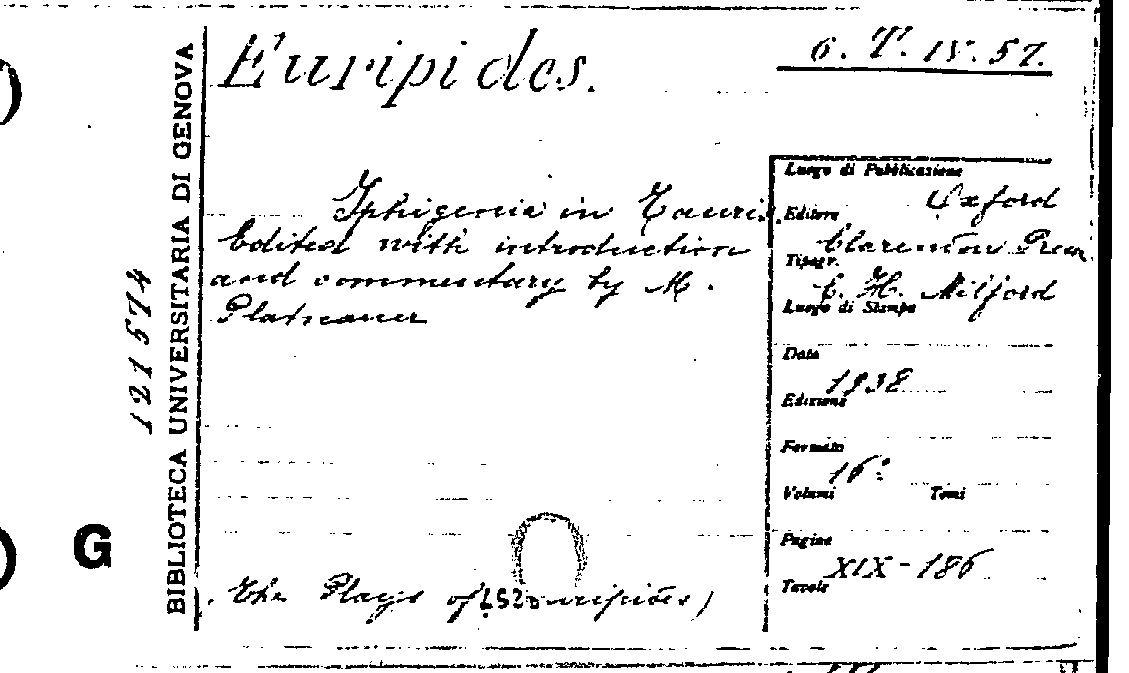 Euripides.
6. T. IV. 57.
BIBLIOTECA UNIVERSITARIA DI GENOVA
121574
G
Iphigenia in Tauris.
Edited with introduction
and commentary by M.
Platnauer
The Plays of Euripides)
Luogo di Pubblicazione
Oxford
Editore
Clarendon Press
Tipogr.
C. H. Milford
Luogo di Stampa
Data
1938
Edizione
Formato
16°
Volumi Tomi
Pagine
XIX-186
Tavole